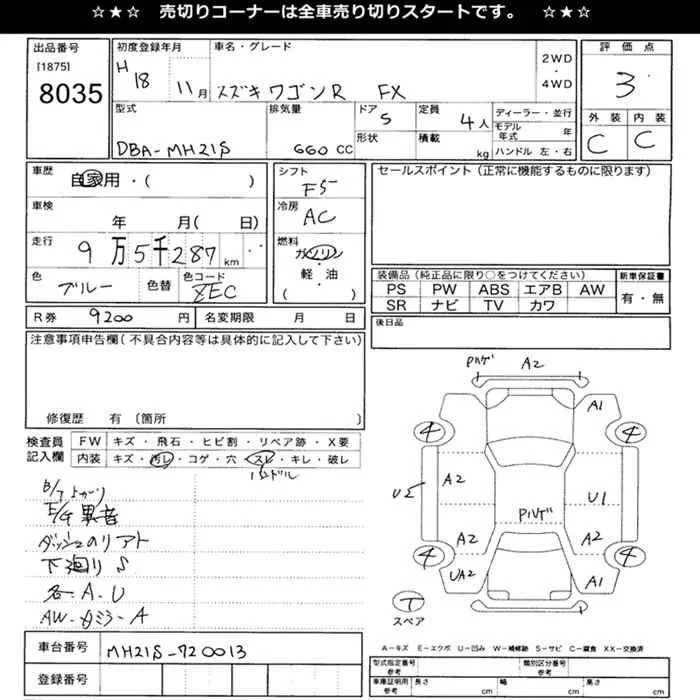 ☆★☆ 売切りコーナーは全車売り切りスタートです。 ☆★☆
出品番号
[1875]
8035
初度登録年月
H 18 11月
車名・グレード
スズキ ワゴンR FX
2WD
・
4WD
評価点
3
型式
DBA-MH21S
排気量
660 CC
ドア
5
形状
定員
4人
積載
kg
ディーラー・並行
モデル年式 年
ハンドル 左・右
外装
C
内装
C
車歴
自家用・( )
車検
年 月( 日)
走行
9万5千287 km
色
ブルー
色替
色コード
ZEC
シフト
F5
冷房
AC
燃料
ガソリン
軽・油
( )
セールスポイント(正常に機能するものに限ります)
装備品(純正品に限り○をつけてください)
PS PW ABS エアB AW
SR ナビ TV カワ
新車保証書
有・無
R券 9200 円
名変期限 月 日
後日品
注意事項申告欄(不具合内容等は具体的に記入して下さい)
修復歴 有(箇所 )
検査員記入欄
FW キズ・飛石・ヒビ割・リペア跡・X要
内装 キズ・汚レ・コゲ・穴・スレ・キレ・破レ
ハンドル
B/Tよがり
E/G異音
ダッシュのリアト
下廻りS
各A.U
AW-カミラ-A
車台番号
MH21S-720013
登録番号
PハゲA2
A1
4
4
A2
U2
U1
Pハゲ
A2
A2
4
4
UA2
A1
T
スペア
A-キズ E-エクボ U-凹み W-補修跡 S-サビ C-腐食 XX-交換済
型式指定番号
参考
類別区分番号
参考
車庫証明用
参考
長さ cm
幅 cm
高さ cm